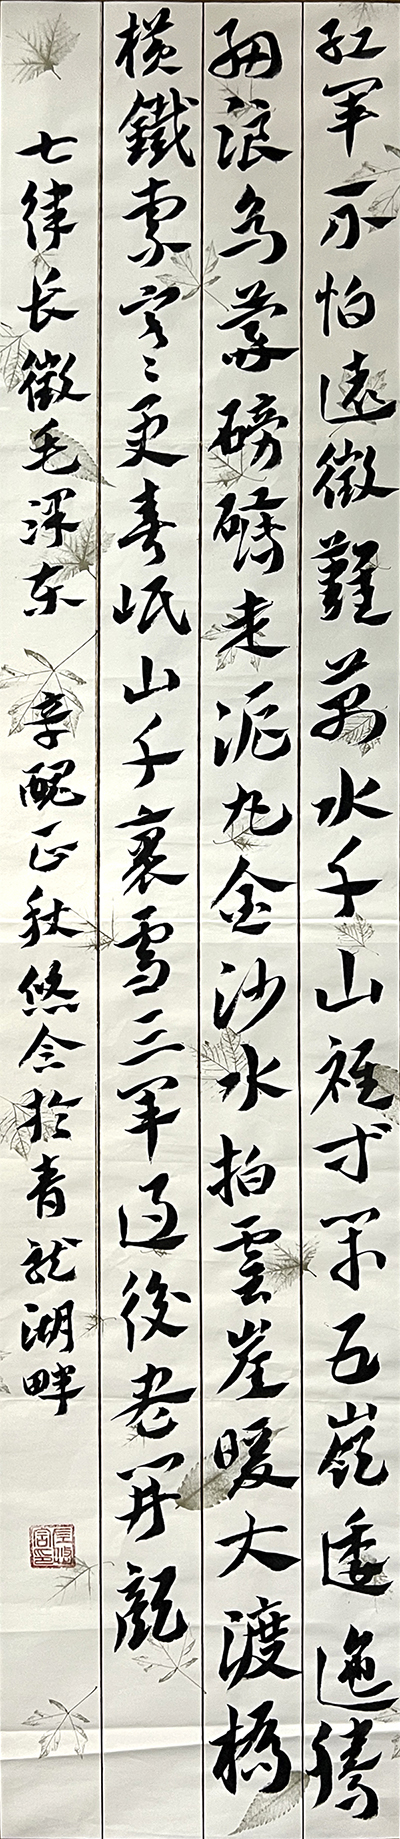 紅軍不怕遠徵難萬水千山祇等閑五嶺逶迤騰
細浪烏蒙磅礴走泥丸金沙水拍雲崖暖大渡橋
橫鐵索寒更喜岷山千裏雪三軍過後盡開顏
七律長徵毛澤东 辛醜正秋悠念於青龍湖畔